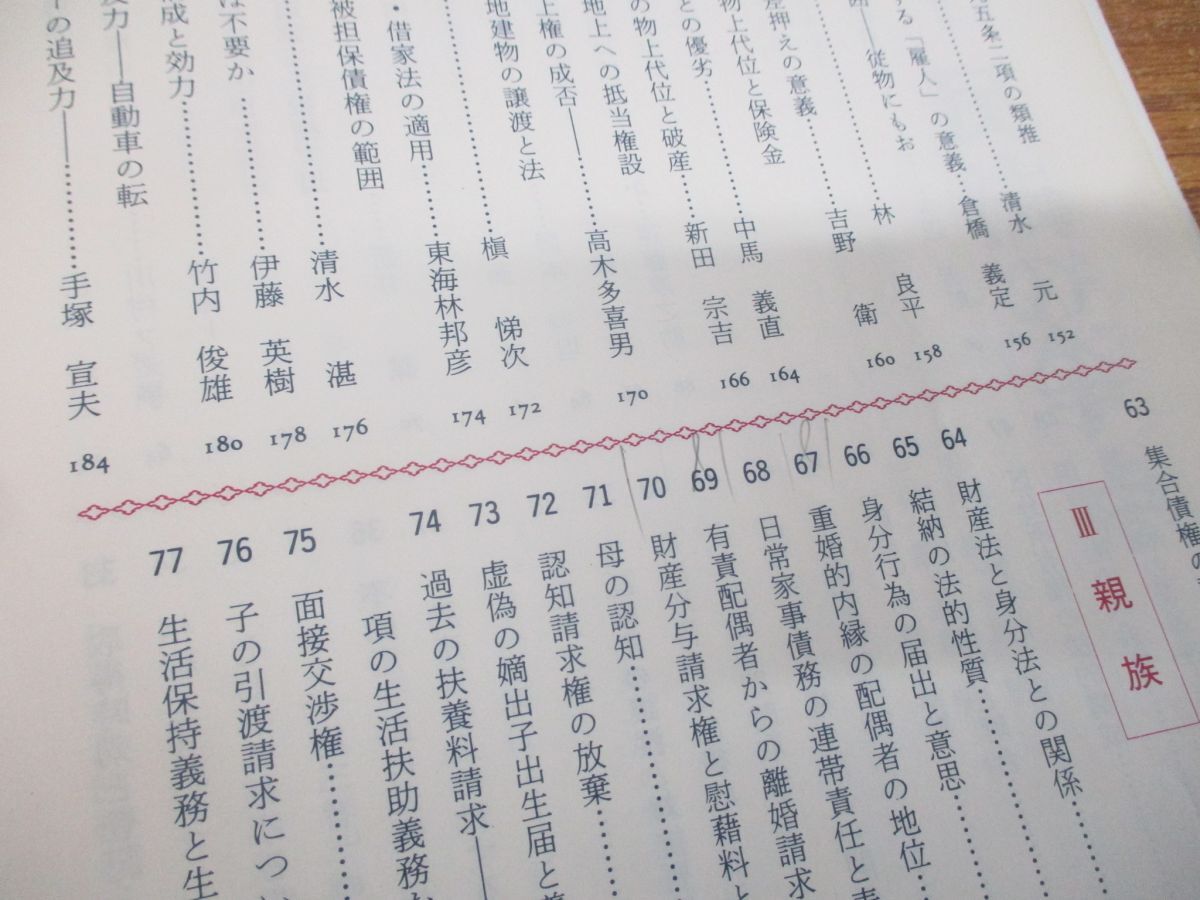 五条二項の類推……清水 元 152
する「雇人」の意義……倉橋 義定 156
――従物にもお
林 良平 158
差押えの意義……吉野 衛 160
物上代位と保険金
中馬 義直 164
との優劣
の物上代位と破産……新田 宗吉 166
地上への抵当権設
上権の成否――……高木多喜男 170
地建物の譲渡と法
槇 悌次 172
・借家法の適用……東海林邦彦 174
被担保債権の範囲
清水 湛 176
は不要か……伊藤 英樹 178
成と効力……竹内 俊雄 180
及力――自動車の転
の追及力――……手塚 宣夫 184
63 集合債権の
Ⅲ 親族
64 財産法と身分法との関係……
65 結納の法的性質……
66 身分行為の届出と意思……
67 重婚的内縁の配偶者の地位……
68 日常家事債務の連帯責任と表
69 有責配偶者からの離婚請求
70 財産分与請求権と慰藉料と
71 母の認知……
72 認知請求権の放棄……
73 虚偽の嫡出子出生届と
74 過去の扶養料請求――
項の生活扶助義務
75 面接交渉権……
76 子の引渡請求につ
77 生活保持義務と生